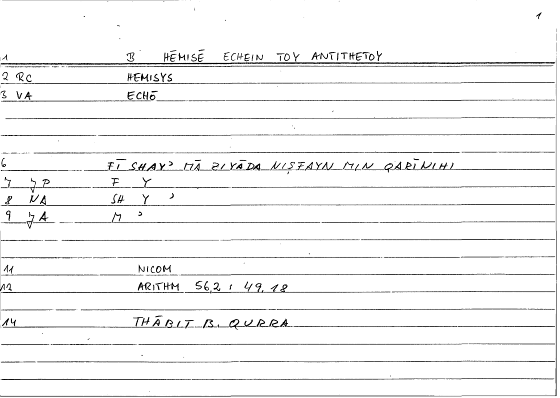 1
1 B HĒMISĒ ECHEIN TOY ANTITHETOY
2 RC HEMISYS
3 VA ECHŌ
6 FĪ SHAYʾ MĀ ZIYĀDA NIṢFAYN MIN QARĪNIHI
7 JP F Y
8 NA SH Y ʾ
9 JA M ʾ
11 NICOM
12 ARITHM 56,2 : 49,18
14 THĀBIT B. QURRA